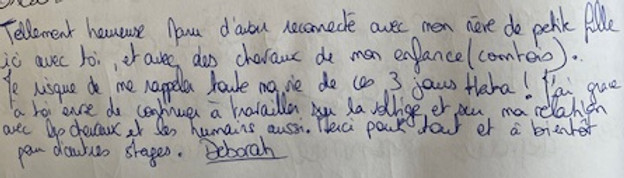 Tellement heureuse d'avoir reconnecté avec mon rêve de petite fille
ici avec toi, et avec des chevaux de mon enfance (comtois).
Je risque de me rappeler toute ma vie de ces 3 jours ! J'ai grâce
à toi envie de continuer à travailler sur la voltige et sur ma relation
avec les chevaux et les humains aussi. Merci pour tout et à bientôt
pour d'autres stages. Deborah